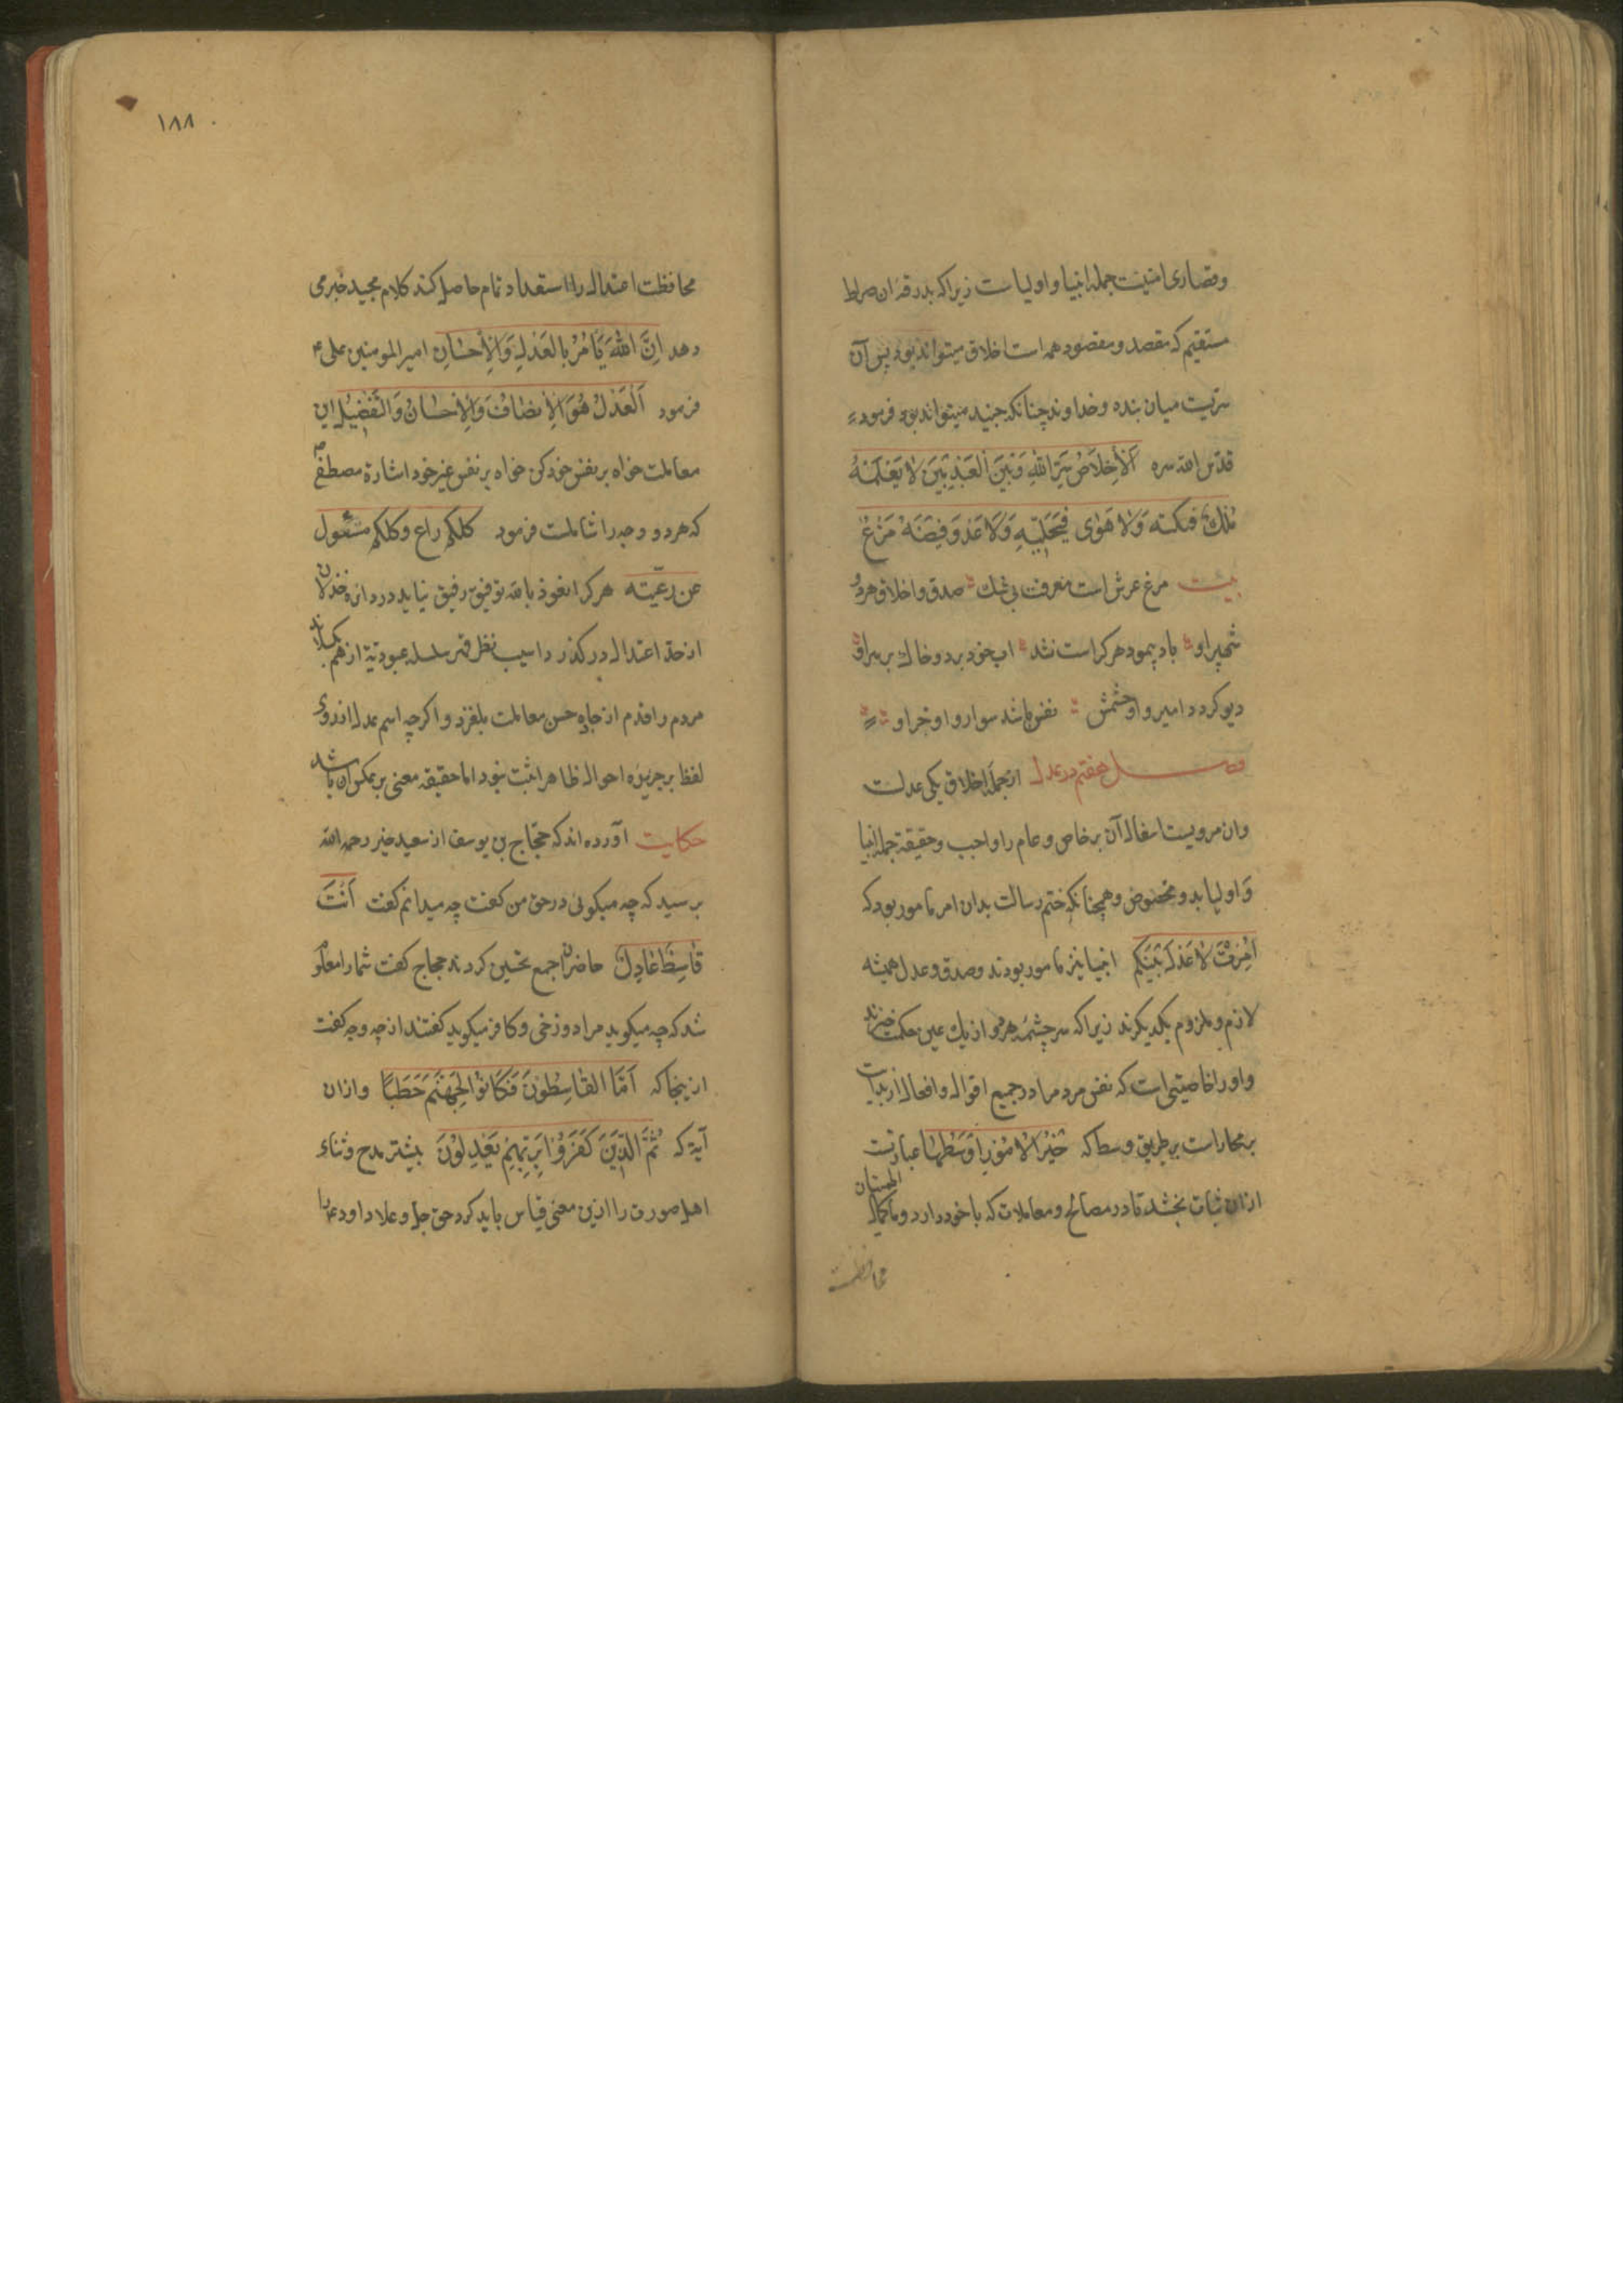 وقصاری امنیت جمله انبیا و اولیاست زیراکه بدرقه ان صراط
مستقیم که مقصد و مقصود همه است اخلاق میتواند بود پس آن
سریست میان بنده و خداوند چنانکه جنید میتواند بود فرمود
قدّس الله سره اَلْاِخْلَاصُ سِرّ اللهِ وَبَیْنَ الْعَبْدِ لا یَعْلَمُهُ
مُلْكٌ فیکتبه وَلا هَوٰی وَلَا عَدُوّ
بیت مرغ عرش است معرفت بی شك صدق و اخلاق هردو
شهپر او باد پیمود هرکه راست نشد اب خود برد و خاك بر سر او
دیو کردد امیر و او حشمش نفس باشد سوار و او خر او
فصـــل هفتم در عدل از جمله اخلاق یکی عدلست
وان مرویست آن بر خاص و عام را واجب و حقیقة جمله انبیا
وَ اولیا بدو مخصوص و همچنانکه ختم رسالت بدان امر مامور بود که
اُمِرْتُ لِاَعْدِلَ بَیْنَکُم انبیا نیز مامور بودند و صدق و عدل همیشه
لازم و ملزوم یکدیکرند زیراکه سر چشمه هردو از یك عین حکمت خیزند
و او را خاصیتی است که نفس مردم را در جمیع اقوال و افعال از بدایات
بر طریق وسط که خَیْرُ الْاُمُوْرِ اَوْسَطُهَا عبارتست
ازان ثبات بخشد تا در مصالح و معاملات که با خود دارد و
محافظت
١٨٨
محافظت اعتدال را استعداد تمام حاصل کند کلام مجید خبر می
دهد اِنَّ اللهَ یَاْمُرُ بِالْعَدْلِ وَالْاِحْسَانِ امیر المومنین علی ع
فرمود اَلْعَدْلُ هُوَ الْاِنْصَافُ وَالْاِحْسَانُ وَالتَّفْضِیْلُ این
معاملت خواه بر نفس خود کن خواه بر نفس غیر خود اشارة مصطفی ص
که هر دو وجه را شاملست فرمود کلکم راع وکلکم مسئول
عن رعیّته هرکرا نعوذ بالله توفیق رفیق نیاید در دایره خذلان
از حدّ اعتدال در کذرد اسیب نظر قهر سلسله عبودیّة از هم بکسلاند
مردم را قدم از جاده حسن معاملت بلغزد و اکرچه اسم عدل از روی
لفظ بر جریده احوال ظاهرا ثبت بود اما حقیقة معنی بر عکس ان باشد
حکایت آورده اند که حجّاج بن یوسف از سعید رحمه الله
برسید که چه میکوئی در حق من کفت چه میدانم کفت اَنْتَ
قَاسِطٌ عَادِلٌ حاضران جمع تحسین کردند حجاج کفت شما را معلوم
شد که چه میکوید مرا دوزخی و کافر میکوید کفتند از چه وجه کفت
ازینجا که اَمَّا القَاسِطُوْنَ فَکَانُوْا لِجَهَنَّمَ حَطَبًا و ازان
آیة که ثُمَّ الَّذِیْنَ کَفَرُوْا بِرَبِّهِمْ یَعْدِلُوْنَ بیشتر مدح و ثناء
اهل صورت را ازین معنی قیاس باید کرد حق جل و علا داود ع را